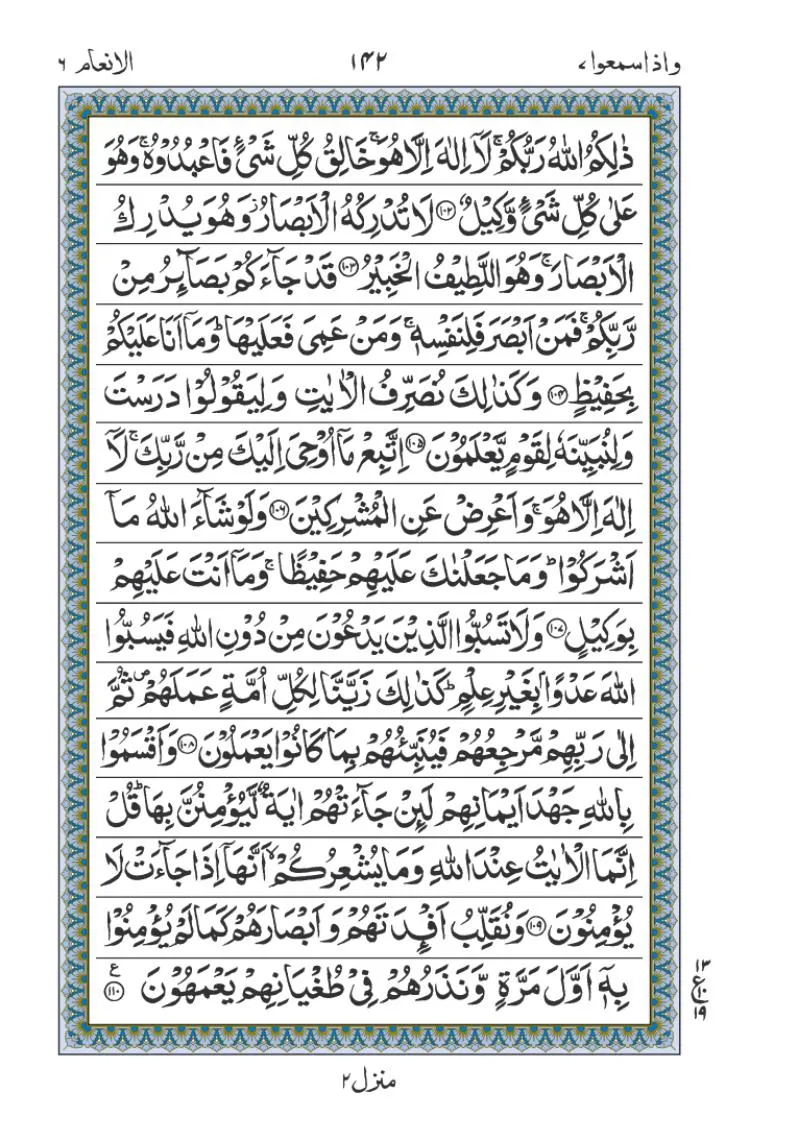 واذا سمعوا ۷ ۱۴۲ الانعام ۶
ذٰلِكُمُ اللّٰهُ رَبُّكُمْ ۚ لَاۤ اِلٰهَ اِلَّا هُوَ ۚ خَالِقُ كُلِّ شَیْءٍ فَاعْبُدُوْهُ ۚ وَهُوَ
عَلٰی كُلِّ شَیْءٍ وَّكِیْلٌ ﴿۱۰۲﴾ لَا تُدْرِكُهُ الْاَبْصَارُ ؗ وَهُوَ یُدْرِكُ
الْاَبْصَارَ ۚ وَهُوَ اللَّطِیْفُ الْخَبِیْرُ ﴿۱۰۳﴾ قَدْ جَآءَكُمْ بَصَآىِٕرُ مِنْ
رَّبِّكُمْ ۚ فَمَنْ اَبْصَرَ فَلِنَفْسِهٖ ۚ وَمَنْ عَمِیَ فَعَلَیْهَا ؕ وَمَاۤ اَنَا عَلَیْكُمْ
بِحَفِیْظٍ ﴿۱۰۴﴾ وَكَذٰلِكَ نُصَرِّفُ الْاٰیٰتِ وَلِیَقُوْلُوْا دَرَسْتَ
وَلِنُبَیِّنَهٗ لِقَوْمٍ یَّعْلَمُوْنَ ﴿۱۰۵﴾ اِتَّبِعْ مَاۤ اُوْحِیَ اِلَیْكَ مِنْ رَّبِّكَ ۚ لَاۤ
اِلٰهَ اِلَّا هُوَ ۚ وَاَعْرِضْ عَنِ الْمُشْرِكِیْنَ ﴿۱۰۶﴾ وَلَوْ شَآءَ اللّٰهُ مَاۤ
اَشْرَكُوْا ؕ وَمَا جَعَلْنٰكَ عَلَیْهِمْ حَفِیْظًا ۚ وَمَاۤ اَنْتَ عَلَیْهِمْ
بِوَكِیْلٍ ﴿۱۰۷﴾ وَلَا تَسُبُّوا الَّذِیْنَ یَدْعُوْنَ مِنْ دُوْنِ اللّٰهِ فَیَسُبُّوا
اللّٰهَ عَدْوًۢا بِغَیْرِ عِلْمٍ ؕ كَذٰلِكَ زَیَّنَّا لِكُلِّ اُمَّةٍ عَمَلَهُمْ ۪ ثُمَّ
اِلٰی رَبِّهِمْ مَّرْجِعُهُمْ فَیُنَبِّئُهُمْ بِمَا كَانُوْا یَعْمَلُوْنَ ﴿۱۰۸﴾ وَاَقْسَمُوْا
بِاللّٰهِ جَهْدَ اَیْمَانِهِمْ لَىِٕنْ جَآءَتْهُمْ اٰیَةٌ لَّیُؤْمِنُنَّ بِهَا ؕ قُلْ
اِنَّمَا الْاٰیٰتُ عِنْدَ اللّٰهِ وَمَا یُشْعِرُكُمْ ۙ اَنَّهَاۤ اِذَا جَآءَتْ لَا
یُؤْمِنُوْنَ ﴿۱۰۹﴾ وَنُقَلِّبُ اَفْـِٕدَتَهُمْ وَاَبْصَارَهُمْ كَمَا لَمْ یُؤْمِنُوْا
بِهٖۤ اَوَّلَ مَرَّةٍ وَّنَذَرُهُمْ فِیْ طُغْیَانِهِمْ یَعْمَهُوْنَ ﴿۱۱۰﴾ ع
۱۳
ع ۱۰
۱۹
منزل ۲